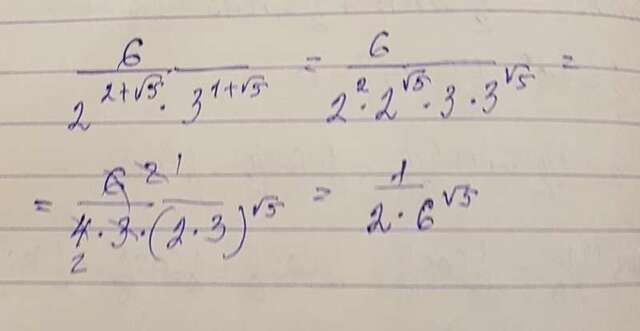 6 / 2^(2+√5) · 3^(1+√5) = 6 / 2^2 · 2^√5 · 3 · 3^√5 =
= 6 2 1 / 4 2 · 3 · (2 · 3)^√5 = 1 / 2 · 6^√5